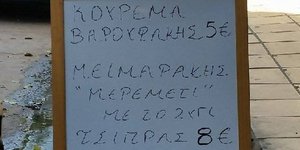 ΚΟΥΡΕΜΑ
ΒΑΡΟΥΦΑΚΗΣ 5€
ΜΕΪΜΑΡΑΚΗΣ
"ΜΕΡΕΜΕΤΙ"
ΜΕ ΤΟ ΖΥΓΙ
ΤΣΙΠΡΑΣ 8€